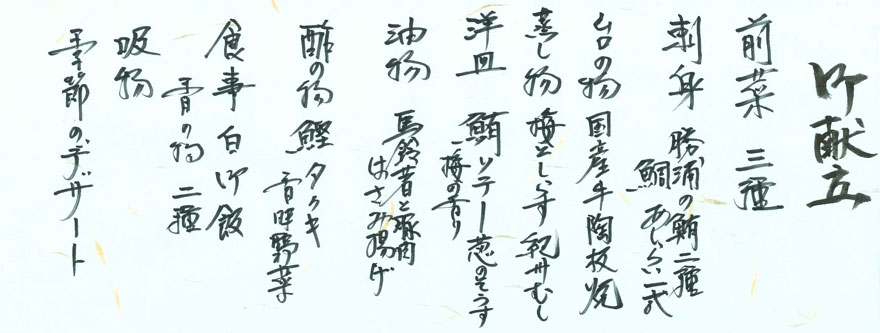 御献立
前菜 三種
刺身 勝浦の鮪二種
鯛 あしらい一式
台の物 国産牛陶板焼
蒸し物 梅としらす 紀州むし
洋皿 鮪ソテー葱のそうす
梅の香り
油物 馬鈴薯と豚肉
はさみ揚げ
酢の物 鰹タタキ
香味野菜
食事 白御飯
香の物 二種
吸物
季節のデザート